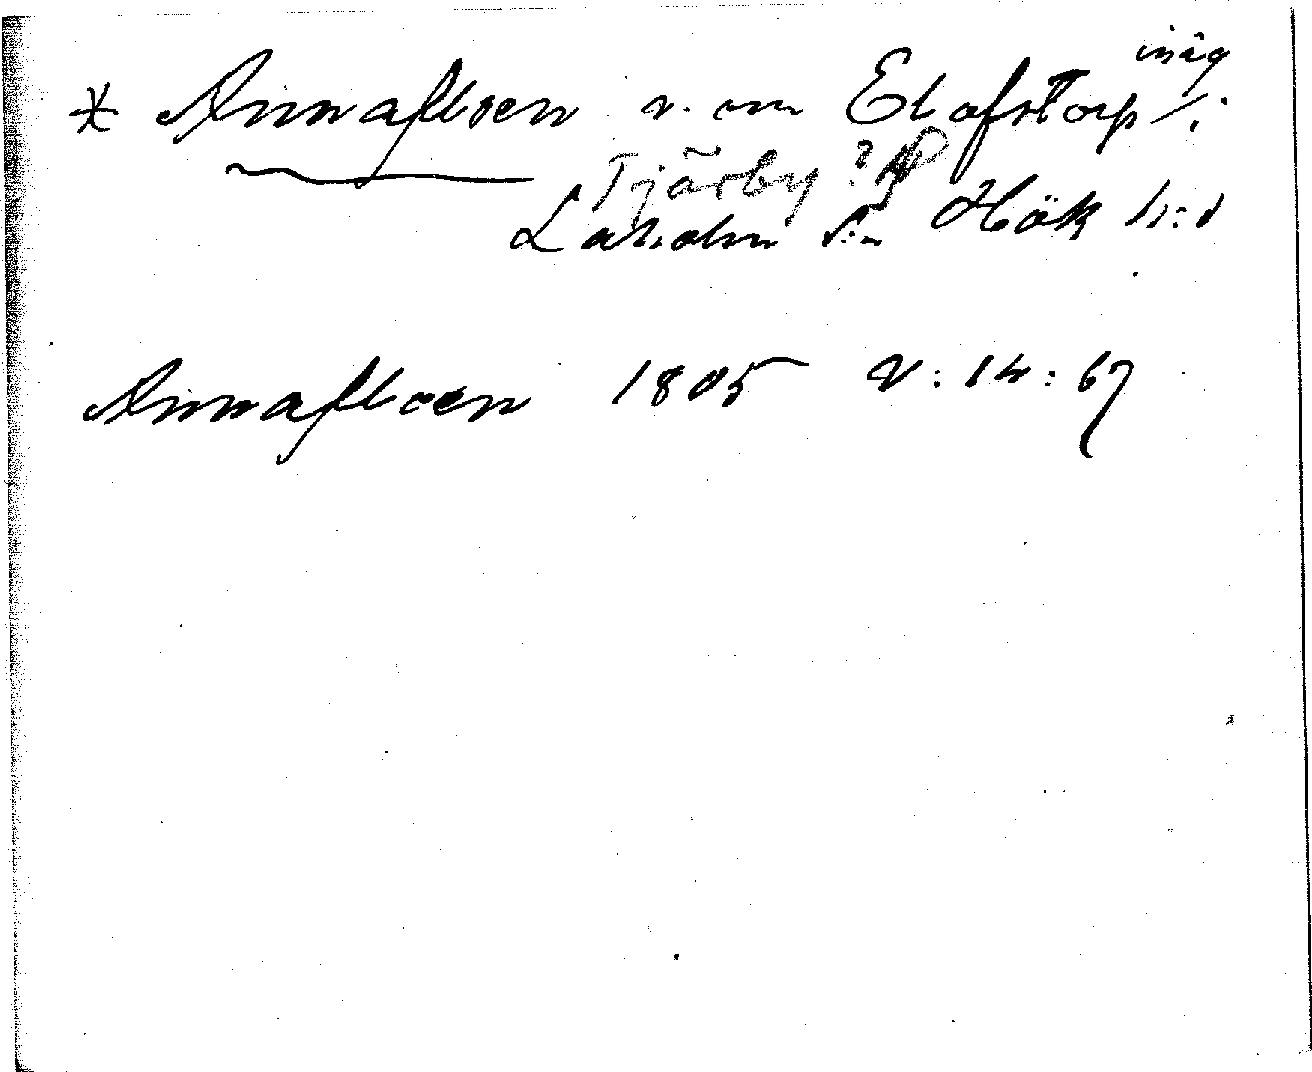 * Annafloen n. om Elofstorp i
inäg
Tjärby?
Laholm s:n Hök h:d
Annafloen 1805 V:14:67